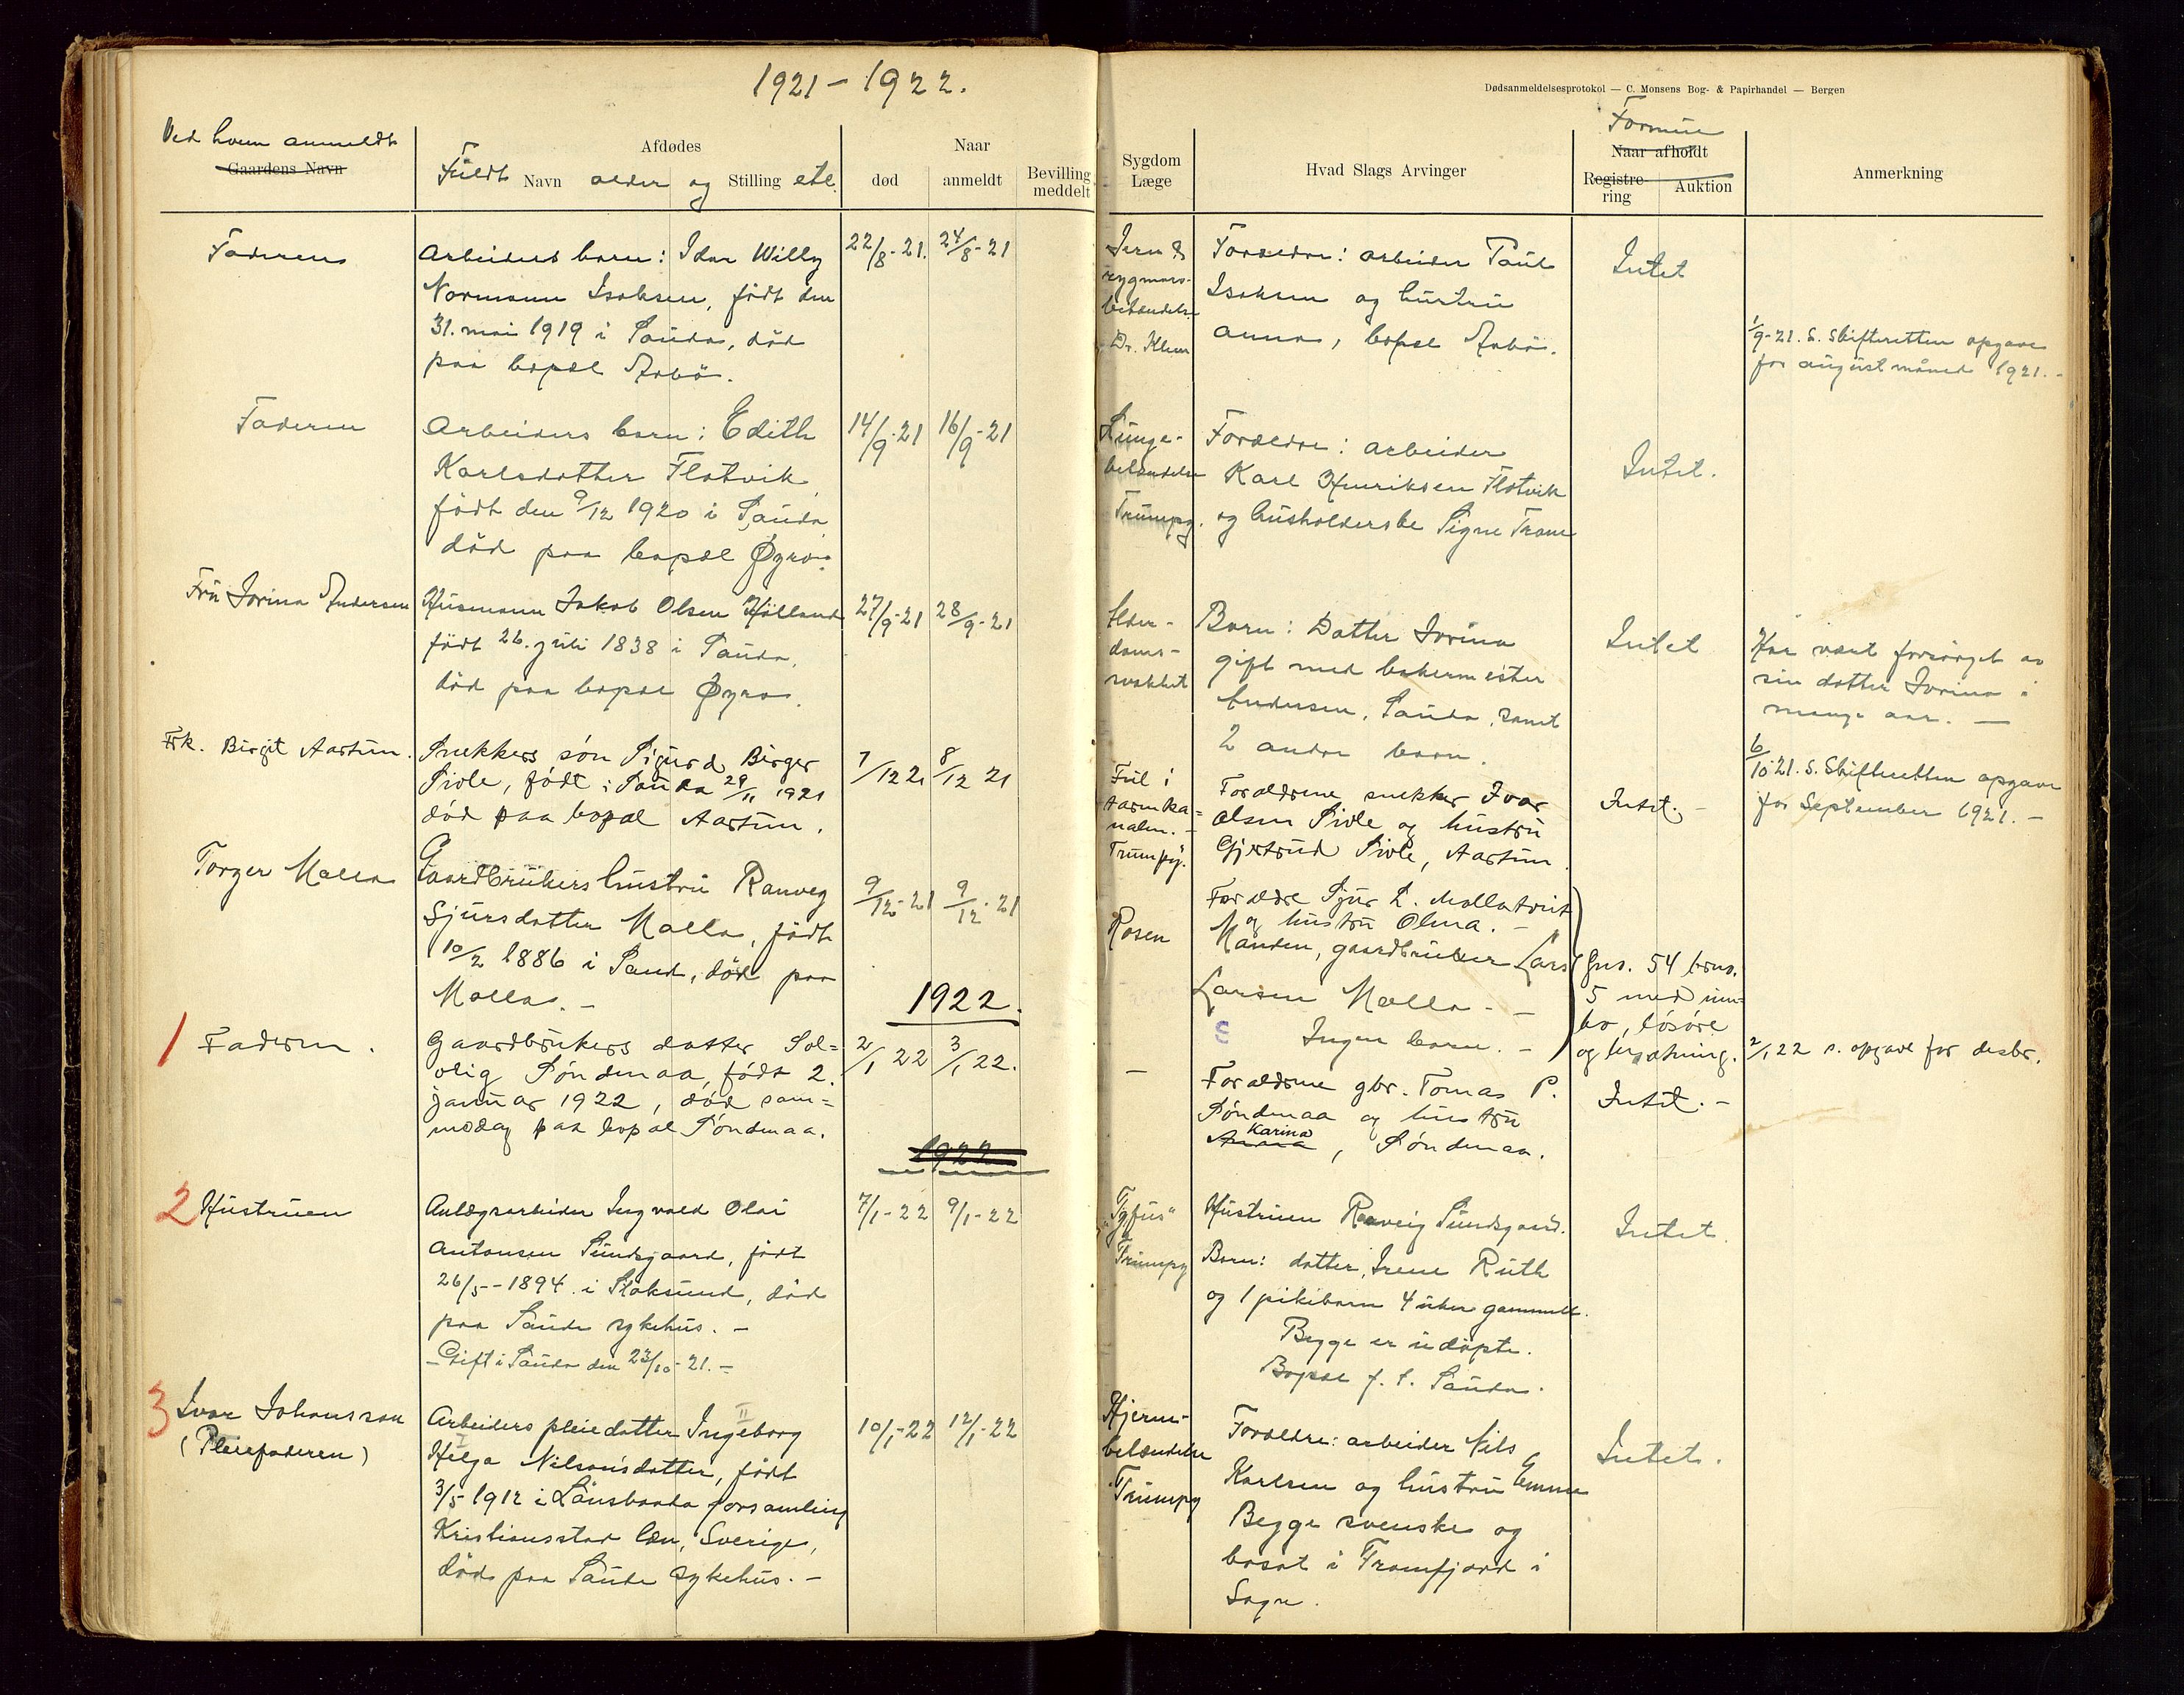 1921 - 1922.
Dødsanmeldelsesprotokol — C. Monsens Bog- & Papirhandel — Bergen
Ved hvem anmeldt
Gaardens Navn
Afdødes
Fuldt Navn alder og Stilling etc.
Naar
død
anmeldt
Bevilling meddelt
Sygdom
Læge
Hvad Slags Arvinger
Formue
Naar afholdt
Registre-
ring
Auktion
Anmerkning
Faderen
Arbeiders barn: Idar Willy
Normann Isaksen, født den
31. mai 1919 i Sauda, död
paa bopæl Aabö.
22/8-21. 24/8-21
betændelse
Dr. Klem
Forældre: arbeider Paul
Isaksen og hustru
Anna, bopæl Aabö.
Intet
1/9-21. S. Skifteretten opgave
for august måned 1921. -
Faderen
Arbeiders barn: Edith
Karlsdatter Flotvik,
födt den 9/12 1920 i Sauda
död paa bopæl Øyra.
14/9-21 16/9-21
Lunge-
betændelse
Trumpy.
Forældre: arbeider
Karl Henriksen Flotvik
og husholderske Signe Trane
Intet.
Fru Jorina Andersen
Husmann Jakob Olsen Hölland
födt 26. juli 1838 i Sauda,
död paa bopæl Øyra.
27/9-21 28/9-21
Alder-
doms-
svakhet
Barn: Datter Jorina
gift med bakermester
Andersen, Sauda, samt
2 andre barn.
Intet
Har vært forsörget av
sin datter Jorina i
mange aar. —
6/10-21. S. Skifteretten opgave
for September 1921. -
Frk. Birgit Aartun.
Snekkers sön Sigurd Birger
Sivle, födt i Sauda 29/11 1921
död paa bopæl Aartun.
7/12 21 8/12 21
Feil i
tarmka=
nalen. -
Trumpy.
Forældrene snekker Ivar
Olsen Sivle og hustru
Gjertrud Sivle, Aartun.
Intet. -
Torger Mælla
Gaardbrukers hustru Ranveg
Sjursdatter Mælla, födt
10/2 1886 i Sand, död paa
Mælla. -
9/12-21 9/12-21
Rosen
Forældre Sjur L. Mollatveit
og hustru Olena. -
Manden, gaardbruker Lars
Larsen Mælla. -
Ingen barn. -
Gnr. 54 brnr.
5 med inn-
bo, lösöre
og besætning.
2/1 22 s. opgave for desbr.
1922.
1 Faderen.
Gaardbrukers datter Sol=
veig Söndenaa, födt 2.
januar 1922, död sam=
medag paa bopæl Söndenaa.
2/1 22 3/1 22.
—
Forældrene gbr. Tomas P.
Söndenaa og hustru
Karina
Anna, Söndenaa.
Intet. -
1922
2 Hustruen
Anlægsarbeider Ingvald Olai
Antonsen Sundsgaard, födt
26/5-1894 i Stoksund, död
paa Sauda sykehus. -
- Gift i Sauda den 23/10-21. -
7/1-22 9/1-22
"Tyfus"
Trumpy
Hustruen Ranveig Sundsgaard.
Barn: datter, Irene Ruth
og 1 pikebarn 4 uker gammelt.
Begge er udöpte.
Bopæl f. t. Sauda.
Intet.
3 Ivar Johansson
(Pleiefaderen)
Arbeiders pleiedatter Ingeborg II
I
Helga Nilsonsdatter, födt
3/5 1912 i Lönsboda forsamling
Kristiansstad län, Sverige,
död paa Sauda sykehus. -
10/1-22 12/1-22
Hjerne-
betændelse
Trumpy
Forældre: arbeider Nils
Karlsen og hustru Emma
Begge svenske og
bosat i Framfjord i
Sogn.
Intet.